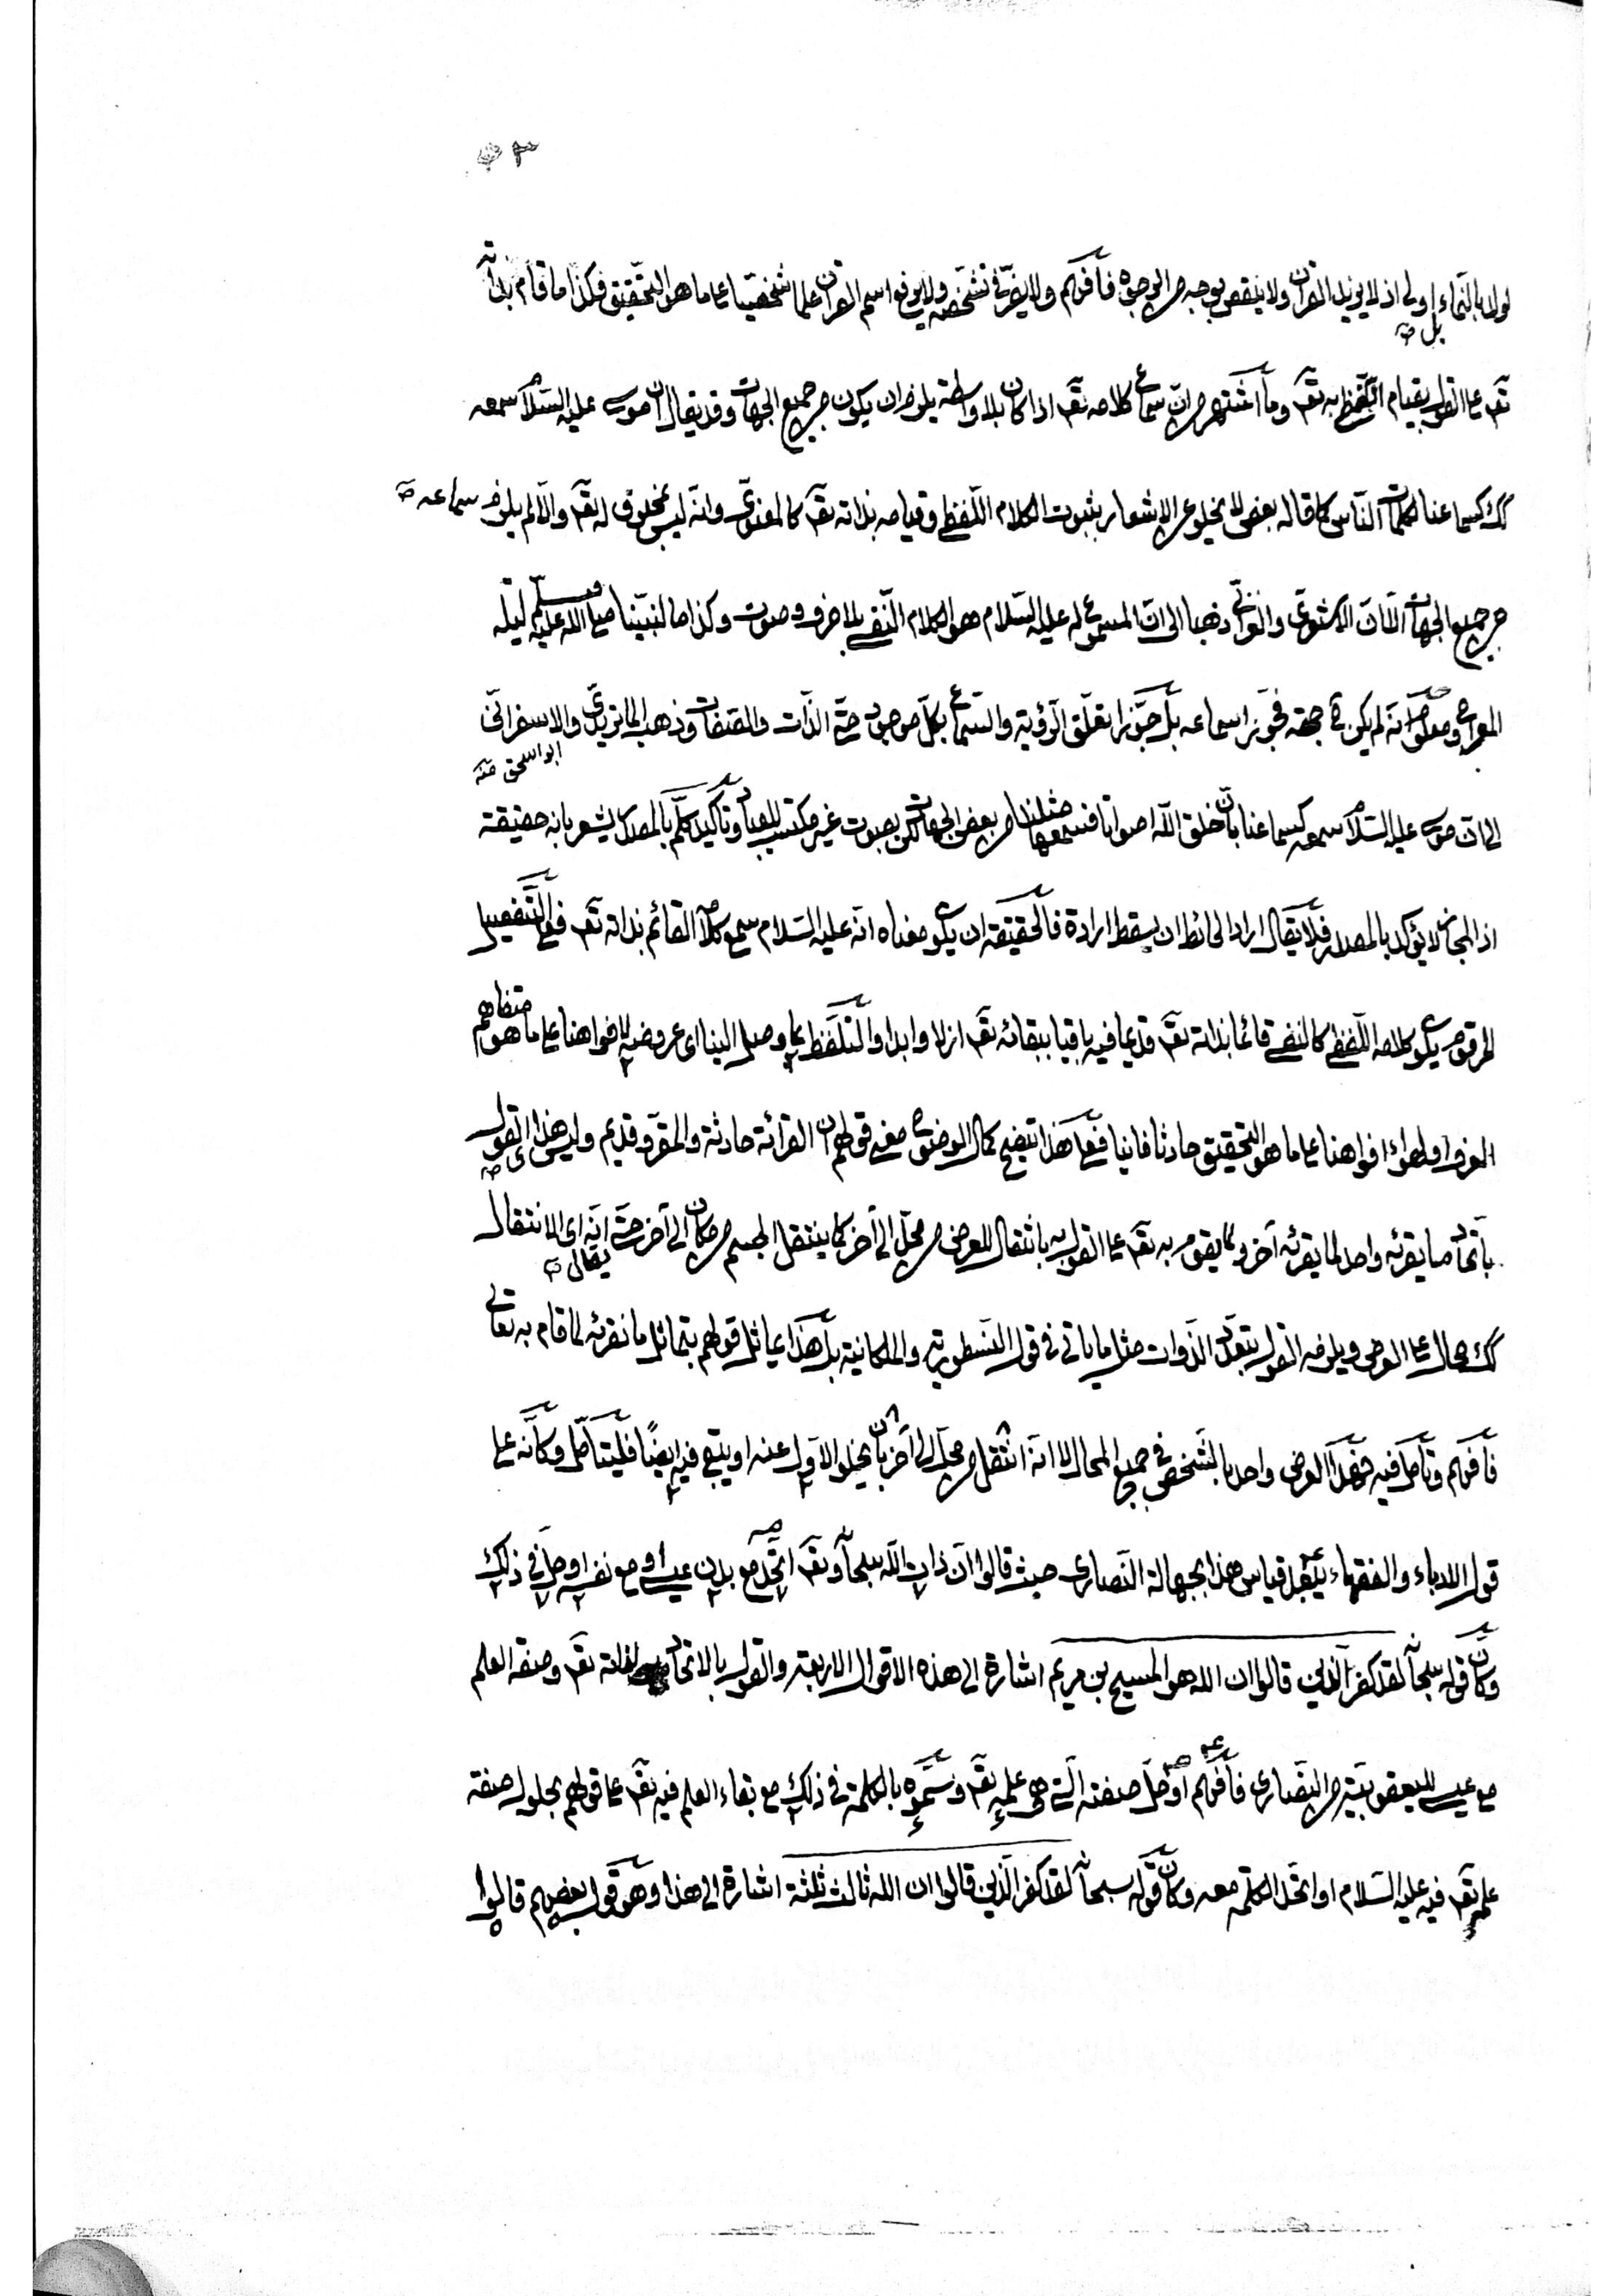 اولى اذ لا يزيد القرآن ولا ينقص بوجه من الوجوه فافهم ولا يضر في تشخصه ولا يرفع اسم القرآن علما شخصيا على ما هو التحقيق فكذا ما قام بذاته
بل صح
تع على القول بقيام اللفظى به تع وما اشتهر من ان سماع كلامه تع اذا كان بلا واسطة يلزم ان يكون من جميع الجهات وقد يقال ان موسى عليه السلام سمعه
كك كسماعنا كلمات الناس كما قاله بعض لا يخلو عن الاشعار بثبوت الكلام اللفظى وقيامه بذاته تع كالمعنوى وانه ليس بمخلوق له تع والا لم يلزم سماعه صح
من جميع الجهات الا ان الاشعرى والغزالى ذهبا الى ان المسموع له عليه السلام هو الكلام النفسى بلا حرف وصوت وكذا ما لنبينا صلى الله عليه وسلم ليلة
المعراج ومعلوم انه لم يكن فى جهة فجوزا سماعه بل جوزا تعلق الرؤية والسماع بكل موجود حتى الذات والصفات وذهب الماتريدى والاسفرائنى
ابو اسحق منه
الى ان موسى عليه السلام سمعه كسماعنا بان خلق الله اصواتا فسمعها مثلنا من بعض الجهات لكن بصوت غير مكتسب للعباد وتأكيد كلم بالمصدر يشعر بانه حقيقة
اذ المجاز لا يؤكد بالمصدر فلا يقال اراد الحائط ان يسقط ارادة فالحقيقة ان يكون معناه انه عليه السلام سمع كلامه القائم بذاته تع فعلى التفصيل
المرقوم يكون كلامه اللفظى كالنفسى قائما بذاته تع قديما فيه باقيا ببقائه تع ازلا وابدا والتلفظ بما وصل الينا اى عروضه لافواهنا على ما هو متفاهم
العرف او لهواء افواهنا على ما هو التحقيق حادثا فانيا فعلى هذا يتضح كمال الوضوح معنى قولهم ان القرائة حادثة والمقرو قديم وليس هذا القول
باتحاد ما يقرئه واحد لما يقرئه آخر ولما يقوم به تع على القول به بانتقال العرض من محل الى آخر كما ينتقل الجسم من مكان الى آخر حتى يقال صح انه اى الانتقال
كك محال على العرض ويلزمه القول بتعدد الذوات مثل ما يأتى فى قول النسطورية والملكانية بل هذا يماثل قولهم بتماثل ما نقرئه لما قام به تعالى
فافهم وتأمل فيه فهذا العرض واحد بالشخص فى جميع المحال لا انه انتقل من محل الى آخر بان يخلو الاول عنه او يبقى فيه ايضا فليتأمل وكأنه على
قول الادباء والفقهاء يقبل قياس هذا بجهالة النصارى حيث قالوا ان ذات الله سبحانه وتع اتحد مع بدن عيسى او مع نفسه او حل فى ذلك
وكأن قوله سبحانه لقد كفر الذين قالوا ان الله هو المسيح بن مريم اشارة الى هذه الاقوال الاربعة والقول بالاتحاد لذاته تع وصفة العلم
مع عيسى لليعقوبية من النصارى فافهم او حل صفته التى هى علمه تع وسموه بالكلمة فى ذلك مع بقاء العلم فيه تع على قولهم بحلول صفة
علمه تع فيه عليه السلام او اتحد الكلمة معه وكأن قوله سبحانه لقد كفر الذين قالوا ان الله ثالث ثلثة اشارة الى هذا وهو قول بعضهم قالوا